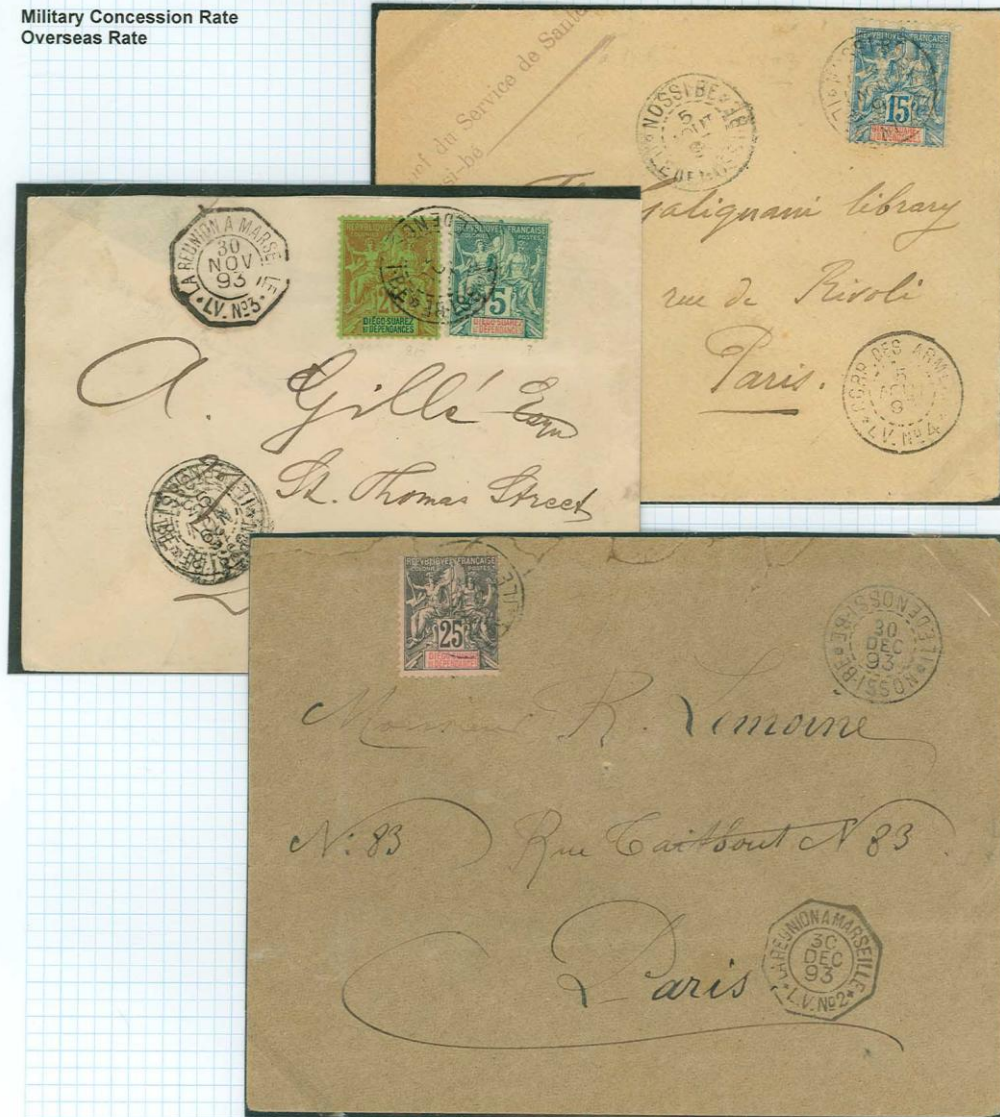 Military Concession Rate
Overseas Rate
du Service de Santé
si-be
REPUBLIQUE FRANÇAISE
15
NOSSI-BE
5
AOUT
Galignani library
rue de Rivoli
Paris.
CORR. DES ARM
5
LV. No 4
LA REUNION A MARSEILLE
30
NOV
93
LV. No 3
REPUBLIQUE FRANÇAISE
DIÉGO-SUAREZ
ET DÉPENDANCES
REPUBLIQUE FRANÇAISE
5
DIÉGO-SUAREZ
ET DÉPENDANCES
A. Gillé Esqr
St. Thomas Street
REPUBLIQUE FRANÇAISE
COLONIES POSTES
25
ET DÉPENDANCES
NOSSI-BE
ILE DE NOSSI-BE
30
DEC
93
Monsieur R. Lemoine
No: 83 Rue Taitbout No 83
Paris
LA REUNION A MARSEILLE
30
DEC
93
L.V. No 2